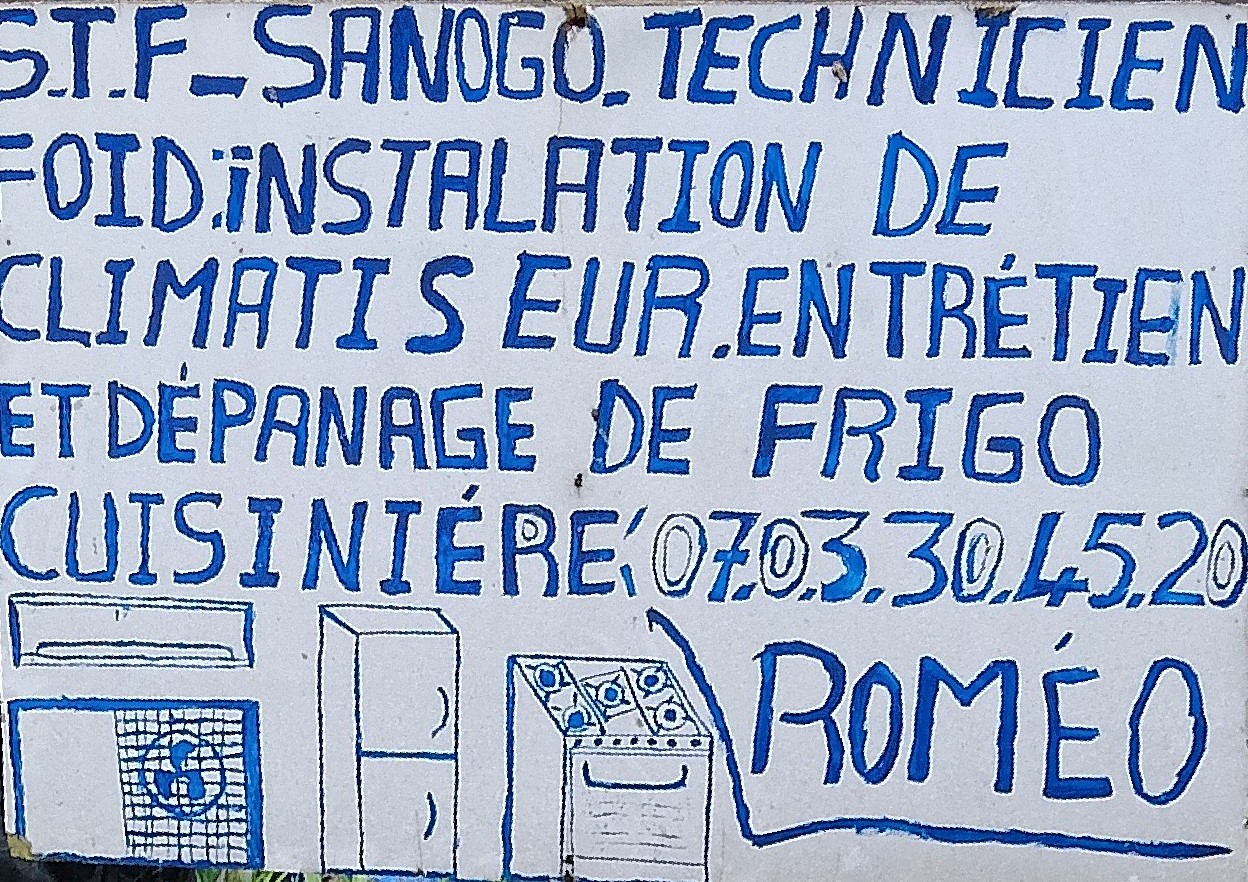 S.T.F_SANOGO_TECHNICIEN
FOID:iNSTALATION DE
CLIMATISEUR.ENTRÉTIEN
ET DÉPANAGE DE FRIGO
CUISINIÉRE: 07.03.30.45.20
ROMÉO